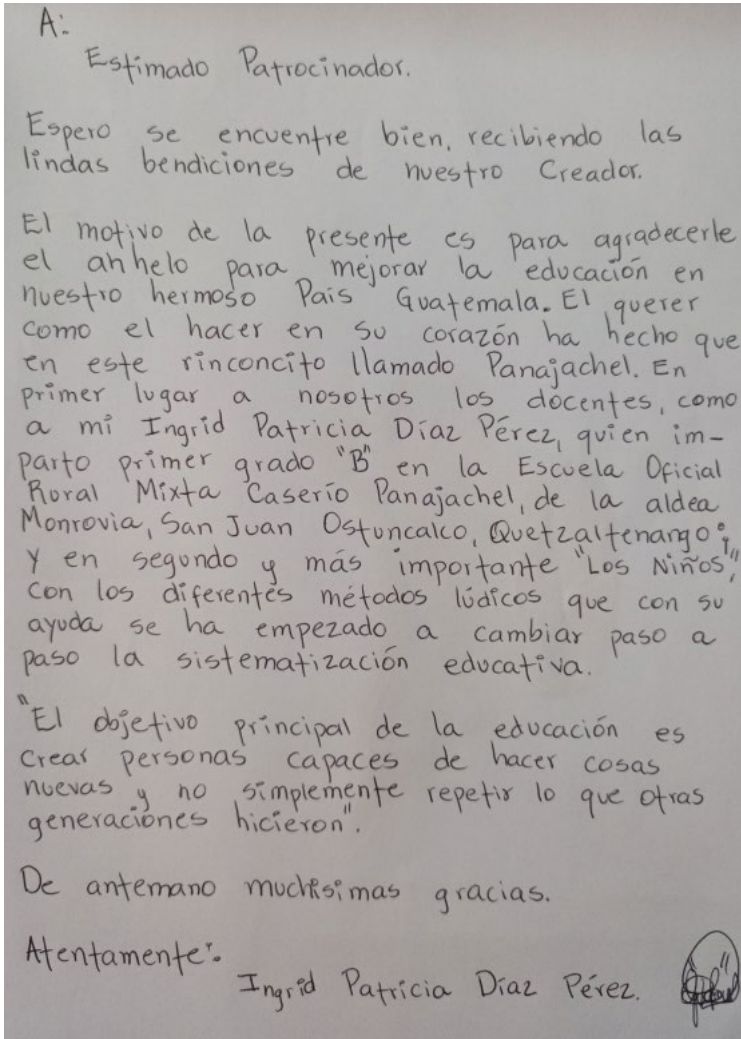 A:
Estimado Patrocinador.
Espero se encuentre bien, recibiendo las
lindas bendiciones de nuestro Creador.
El motivo de la presente es para agradecerle
el anhelo para mejorar la educación en
nuestro hermoso País Guatemala. El querer
como el hacer en su corazón ha hecho que
en este rinconcito llamado Panajachel. En
primer lugar a nosotros los docentes, como
a mí Ingrid Patricia Díaz Pérez, quien im-
parto primer grado "B" en la Escuela Oficial
Rural Mixta Caserío Panajachel, de la aldea
Monrovia, San Juan Ostuncalco, Quetzaltenango;
y en segundo y más importante "Los Niños",
con los diferentes métodos lúdicos que con su
ayuda se ha empezado a cambiar paso a
paso la sistematización educativa.
"El objetivo principal de la educación es
crear personas capaces de hacer cosas
nuevas y no simplemente repetir lo que otras
generaciones hicieron".
De antemano muchísimas gracias.
Atentamente:
Ingrid Patricia Díaz Pérez.